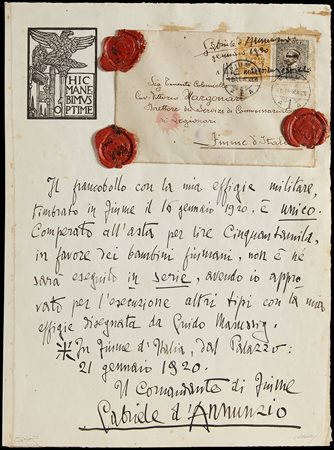 HIC
MANE
BIMVS
OPTIME
Gabriele d'Annunzio
gennaio 1920
Sig. Tenente Colonnello
Cav. Vittorio Margonari
Direttore dei Servizi di Commissariato
dei Legionari
Fiume d'Italia
Il francobollo con la mia effigie militare,
timbrato in Fiume il 16 gennaio 1920, è unico.
Comperato all'asta per lire Cinquantamila,
in favore dei bambini fiumani, non è nè
sarà eseguito in serie, avendo io appro-
vato per l'esecuzione altri tipi con la mia
effigie disegnata da Guido Marussig.
In Fiume d'Italia, dal Palazzo:
21 gennaio 1920.
Il Comandante di Fiume
Gabriele d'Annunzio